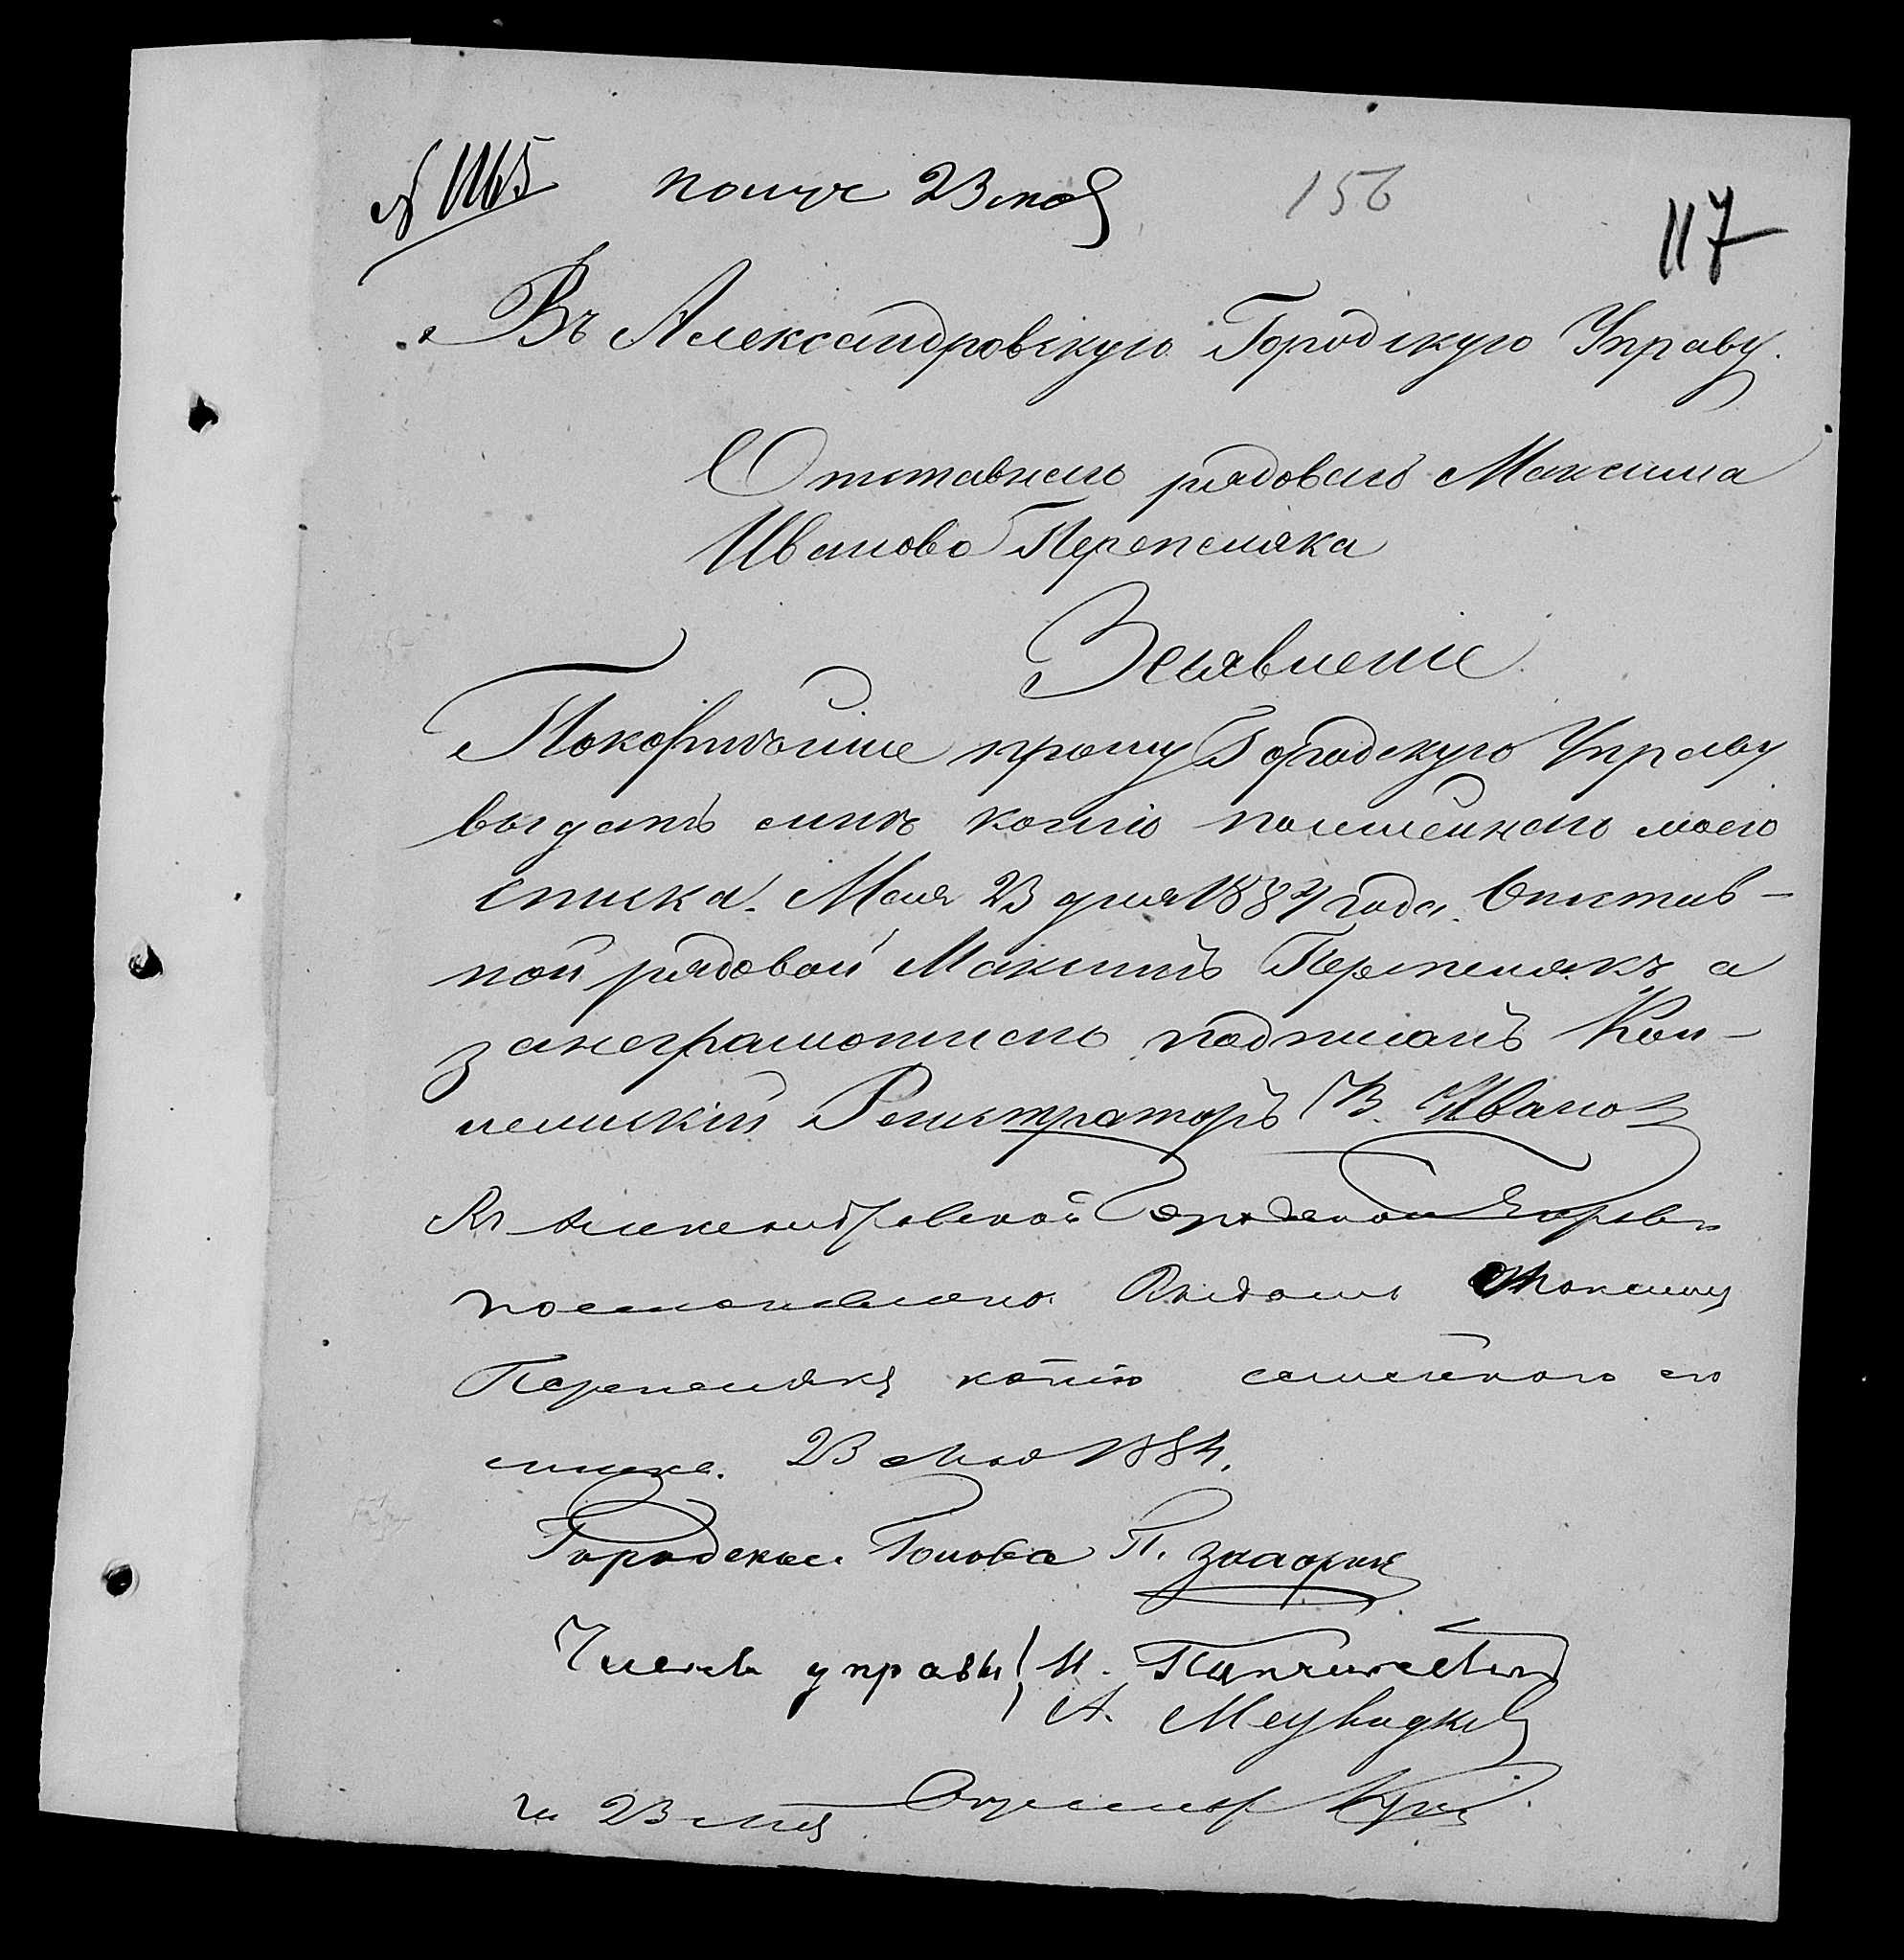 № 1165 получ 23 мая 156
117
Въ Александровскую Городскую Управу.
Отставнаго рядоваго Максима
Иванова Перепеляка
Заявленіе.
Покорнѣйше прошу Городскую Управу
выдать мнѣ копію посемейнаго моего
списка. Мая 23 дня 1884 года. Отстав-
ной рядовой Максимъ Перепелякъ, а
за неграмотнаго подписалъ Кол-
лежскій Регистраторъ В. Ивано
Въ Александровской Городской Управѣ
постановлено: Выдать Максиму
Перепеляку копію семейнаго его
списка. 23 Мая 1884.
Городской Голова П.
Члены управы: И.
А.
23 мая Секретарь